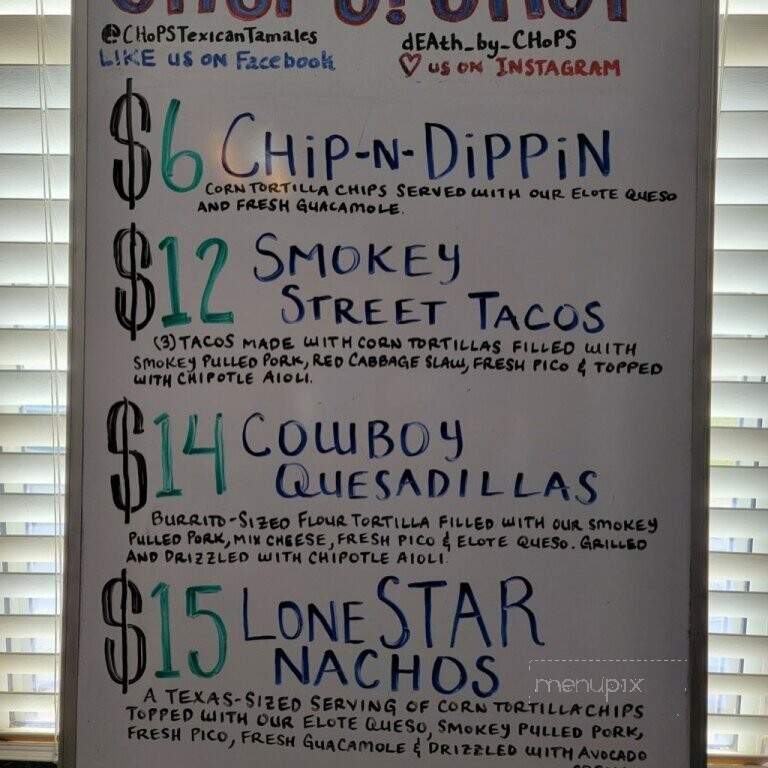 @CHoPSTexicanTamales
LIKE US ON Facebook
dEAth_by_CHoPS
♡ US ON INSTAGRAM
$6 CHiP-N-DiPPiN
CORN TORTILLA CHIPS SERVED WITH OUR ELOTE QUESO
AND FRESH GUACAMOLE.
$12 SMOKEY
STREET TACOS
(3) TACOS MADE WITH CORN TORTILLAS FILLED WITH
SMOKEY PULLED PORK, RED CABBAGE SLAW, FRESH PICO & TOPPED
WITH CHIPOTLE AIOLI.
$14 COWBOY
QUESADILLAS
BURRITO-SIZED FLOUR TORTILLA FILLED WITH OUR SMOKEY
PULLED PORK, MIX CHEESE, FRESH PICO & ELOTE QUESO. GRILLED
AND DRIZZLED WITH CHIPOTLE AIOLI.
$15 LONE STAR
NACHOS
A TEXAS-SIZED SERVING OF CORN TORTILLA CHIPS
TOPPED WITH OUR ELOTE QUESO, SMOKEY PULLED PORK,
FRESH PICO, FRESH GUACAMOLE & DRIZZLED WITH AVOCADO
menupix